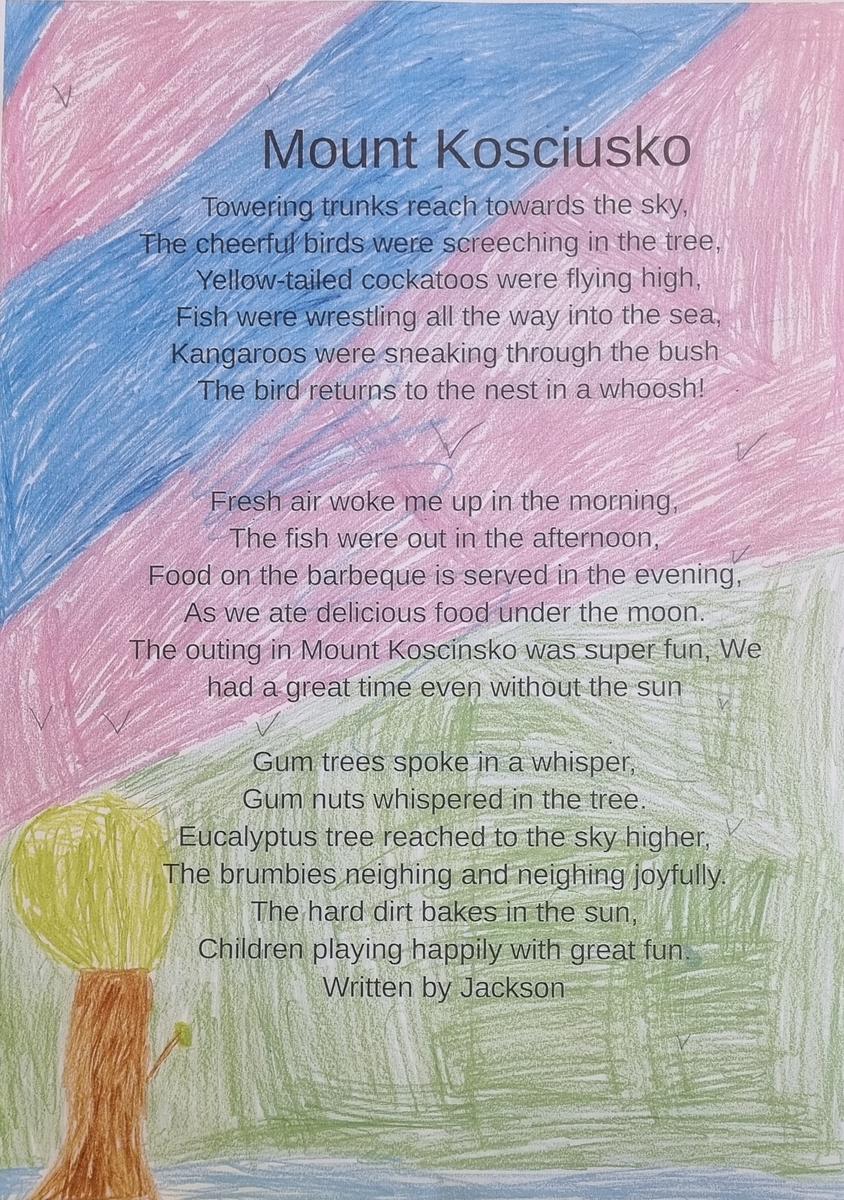 Mount Kosciusko
Towering trunks reach towards the sky,
The cheerful birds were screeching in the tree,
Yellow-tailed cockatoos were flying high,
Fish were wrestling all the way into the sea,
Kangaroos were sneaking through the bush
The bird returns to the nest in a whoosh!
Fresh air woke me up in the morning,
The fish were out in the afternoon,
Food on the barbeque is served in the evening,
As we ate delicious food under the moon.
The outing in Mount Koscinsko was super fun, We
had a great time even without the sun
Gum trees spoke in a whisper,
Gum nuts whispered in the tree.
Eucalyptus tree reached to the sky higher,
The brumbies neighing and neighing joyfully.
The hard dirt bakes in the sun,
Children playing happily with great fun.
Written by Jackson